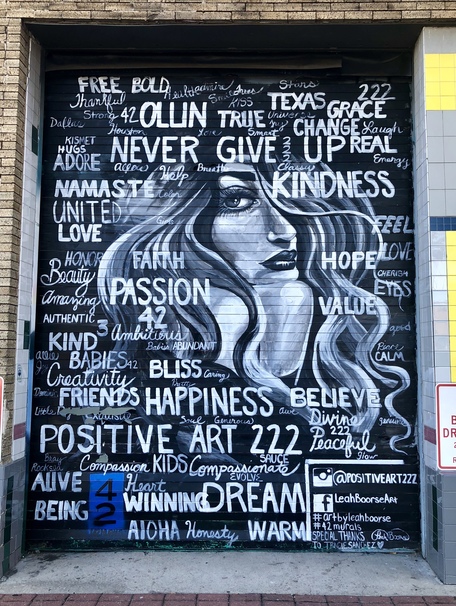 FREE BOLD Stars
Thankful Smile Trees 222
Strong 42 OLLIN TRUE KISS TEXAS GRACE
Dallas Houston Love Smart Universe CHANGE Laugh
KISMET HUGS ADORE NEVER GIVE 222 UP REAL
Energy
Help Breathe Classy
NAMASTE KINDNESS
UNITED
LOVE FEEL
HONOR FAITH HOPE LOVE
Beauty CHERISH
EYES
Amazing PASSION VALUE
AUTHENTIC 3 42
KIND Ambitious good
ABUNDANT Peace
BABIES 42 CALM
Creativity BLISS Caring
FRIENDS HAPPINESS BELIEVE
exquisite Soul Generous awe Divine
POSITIVE ART 222 222
Peaceful
Compassion KIDS Compassionate SAUCE Glow
ALIVE 42 Heart EVOLVE
BEING WINNING DREAM
AlOHA Honesty WARM
@POSITIVEART222
LeahBoorseArt
#artbyleahboorse
#42murals
SPECIAL THANKS
TO TRACIE SANGEZ